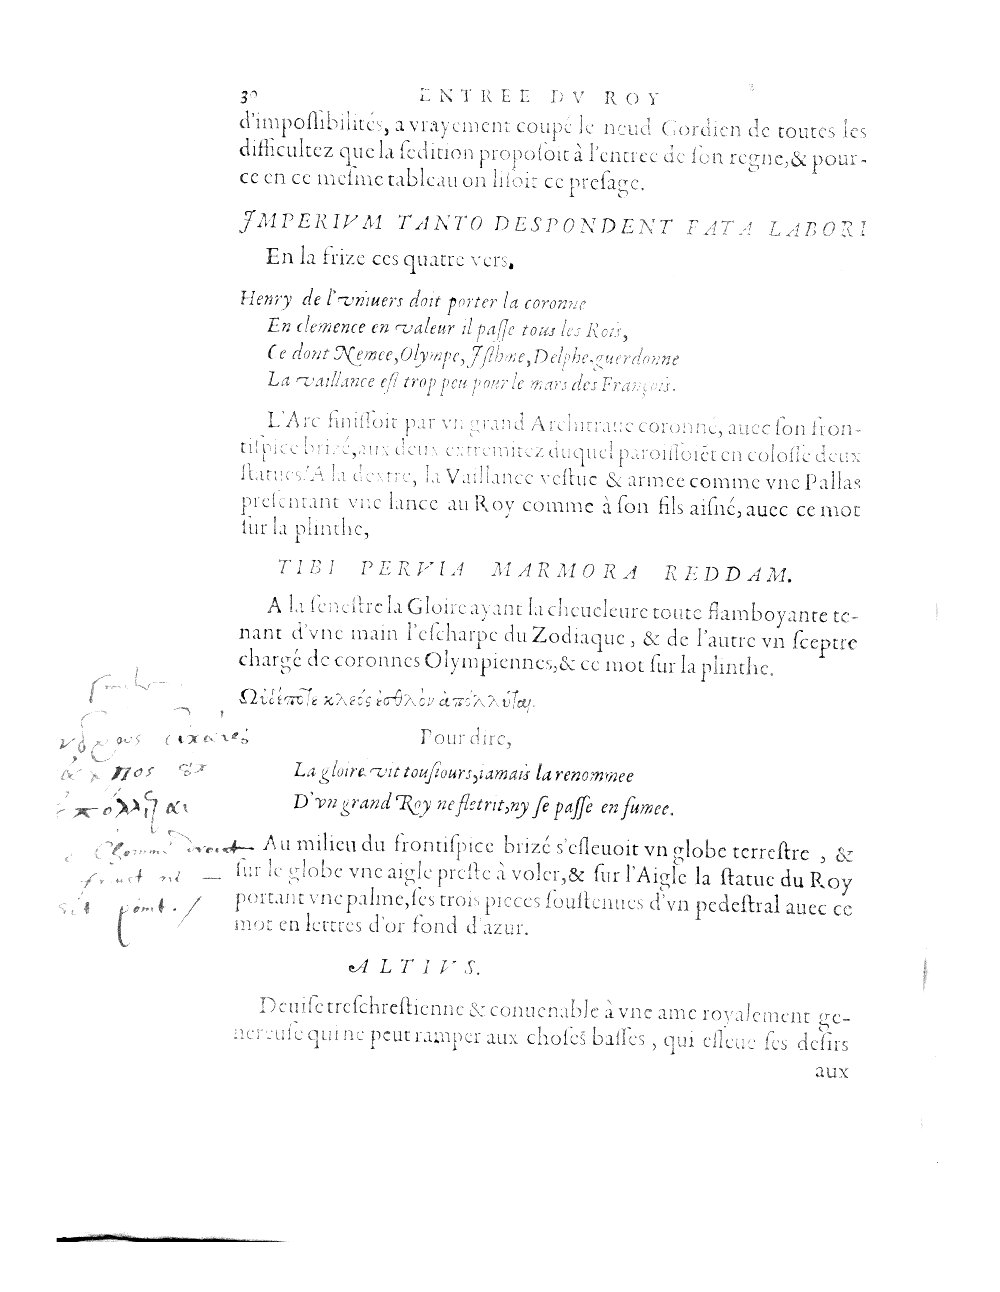 30 ENTREE DV ROY
d'impoſſibilités, a vrayement coupé le neud Gordien de toutes les
difficultez que la ſedition propoſoit à l'entree de ſon regne, & pour-
ce en ce meſme tableau on liſoit ce preſage.
IMPERIVM TANTO DESPONDENT FATA LABORI
En la frize ces quatre vers.
Henry de l'vniuers doit porter la coronne
En clemence en valeur il paſſe tous les Rois,
Ce dont Nemee, Olympe, Iſthme, Delphe guerdonne
La vaillance eſt trop peu pour le mars des François.
L'Arc finiſſoit par vn grand Architraue coronné, auec ſon fron-
tiſpice brizé, aux deux extremitez duquel paroiſſoiẽt en coloſſe deux
ſtatues. A la dextre, la Vaillance veſtue & armee comme vne Pallas
preſentant vne lance au Roy comme à ſon fils aiſné, auec ce mot
ſur la plinthe,
TIBI PERVIA MARMORA REDDAM.
A la ſeneſtre la Gloire ayant la cheueleure toute flamboyante te-
nant d'vne main l'eſcharpe du Zodiaque, & de l'autre vn ſceptre
chargé de coronnes Olympiennes, & ce mot ſur la plinthe.
κλεός ἐσθλὸν ἀπόλλύται.
Pour dire,
La gloire vit touſiours, iamais la renommee
D'vn grand Roy ne fletrit, ny ſe paſſe en fumee.
Au milieu du frontiſpice brizé s'eſleuoit vn globe terreſtre, &
ſur le globe vne aigle preſte à voler, & ſur l'Aigle la ſtatue du Roy
portant vne palme, ſes trois pieces ſouſtenues d'vn pedeſtral auec ce
mot en lettres d'or fond d'azur.
ALTIVS.
Deuiſe treſchreſtienne & conuenable à vne ame royalement ge-
nereuſe qui ne peut ramper aux choſes baſſes, qui eſleue ſes deſirs
aux